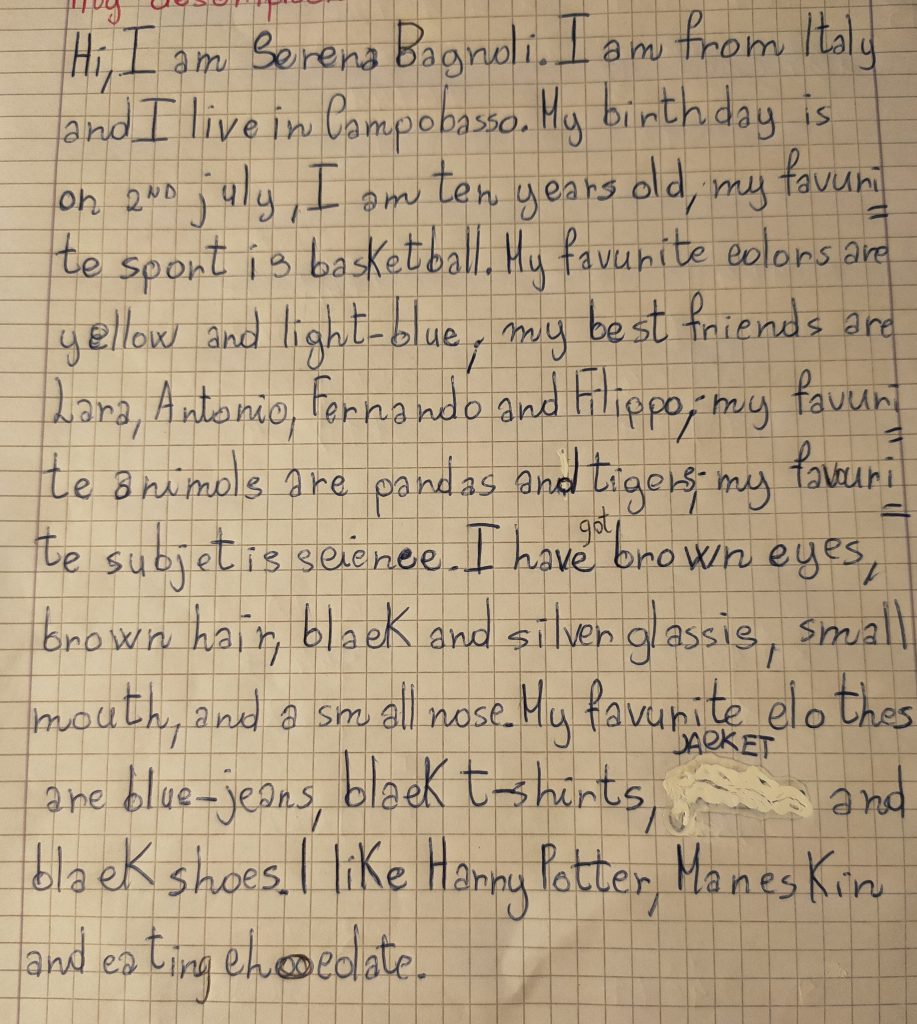 Hi, I am Serena Bagnoli. I am from Italy
and I live in Campobasso. My birthday is
on 2ND july, I am ten years old, my favuri
te sport is basketball. My favurite colors are
yellow and light-blue, my best friends are
Lara, Antonio, Fernando and Filippo, my favuri
te animals are pandas and tigers, my favouri
te subjet is science. I have got brown eyes,
brown hair, black and silver glassis, small
mouth, and a small nose. My favurite clothes
are blue-jeans, black t-shirts, JACKET and
black shoes. I like Harry Potter, Maneskin
and eating chocolate.